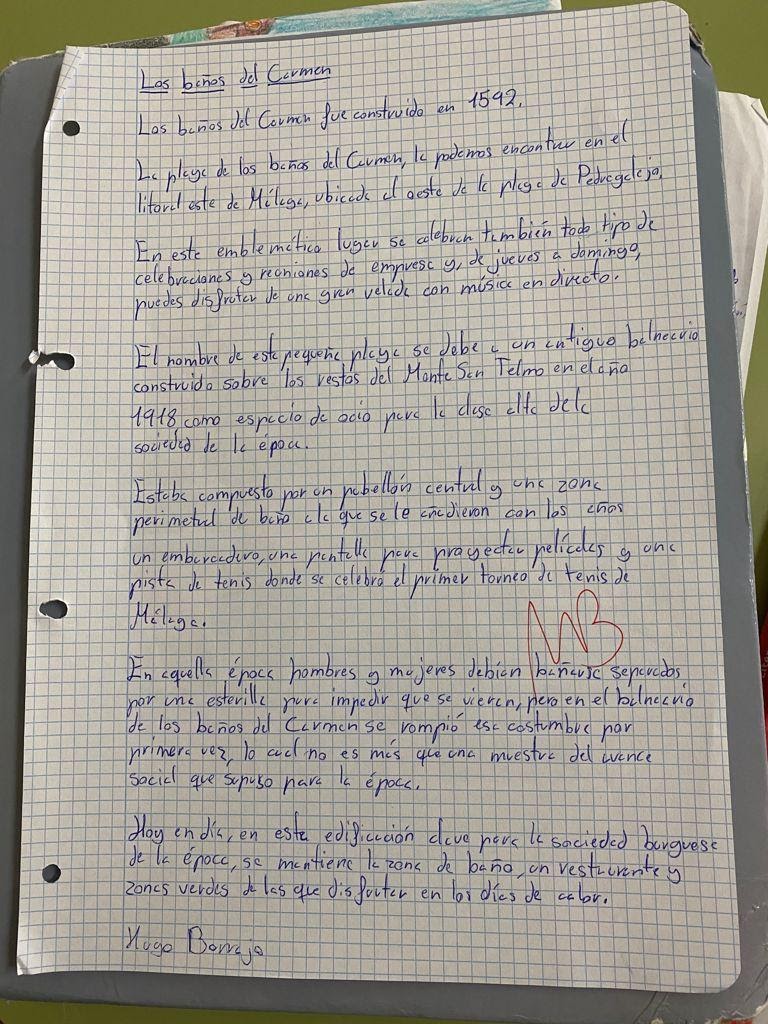 Los baños del Carmen
Los baños del Carmen fue construido en 1592.
La playa de los baños del Carmen, la podemos encontrar en el
litoral este de Málaga, ubicada al oeste de la playa de Pedregalejo.
En este emblemático lugar se celebran también todo tipo de
celebraciones y reuniones de empresa y, de jueves a domingo,
puedes disfrutar de una gran velada con música en directo.
El nombre de esta pequeña playa se debe a un antiguo balneario
construido sobre los restos del Monte San Telmo en el año
1918 como espacio de ocio para la clase alta de la
sociedad de la época.
Estaba compuesto por un pabellón central y una zona
perimetral de baño a la que se le añadieron con los años
un embarcadero, una pantalla para proyectar películas y una
pista de tenis donde se celebró el primer torneo de tenis de
Málaga.
MB
En aquella época hombres y mujeres debían bañarse separados
por una esterilla para impedir que se vieran, pero en el balneario
de los baños del Carmen se rompió esa costumbre por
primera vez, lo cual no es más que una muestra del avance
social que supuso para la época.
Hoy en día, en esta edificación clave para la sociedad burguesa
de la época, se mantiene la zona de baño, un restaurante y
zonas verdes de las que disfrutar en los días de calor.
Hugo Borrajo